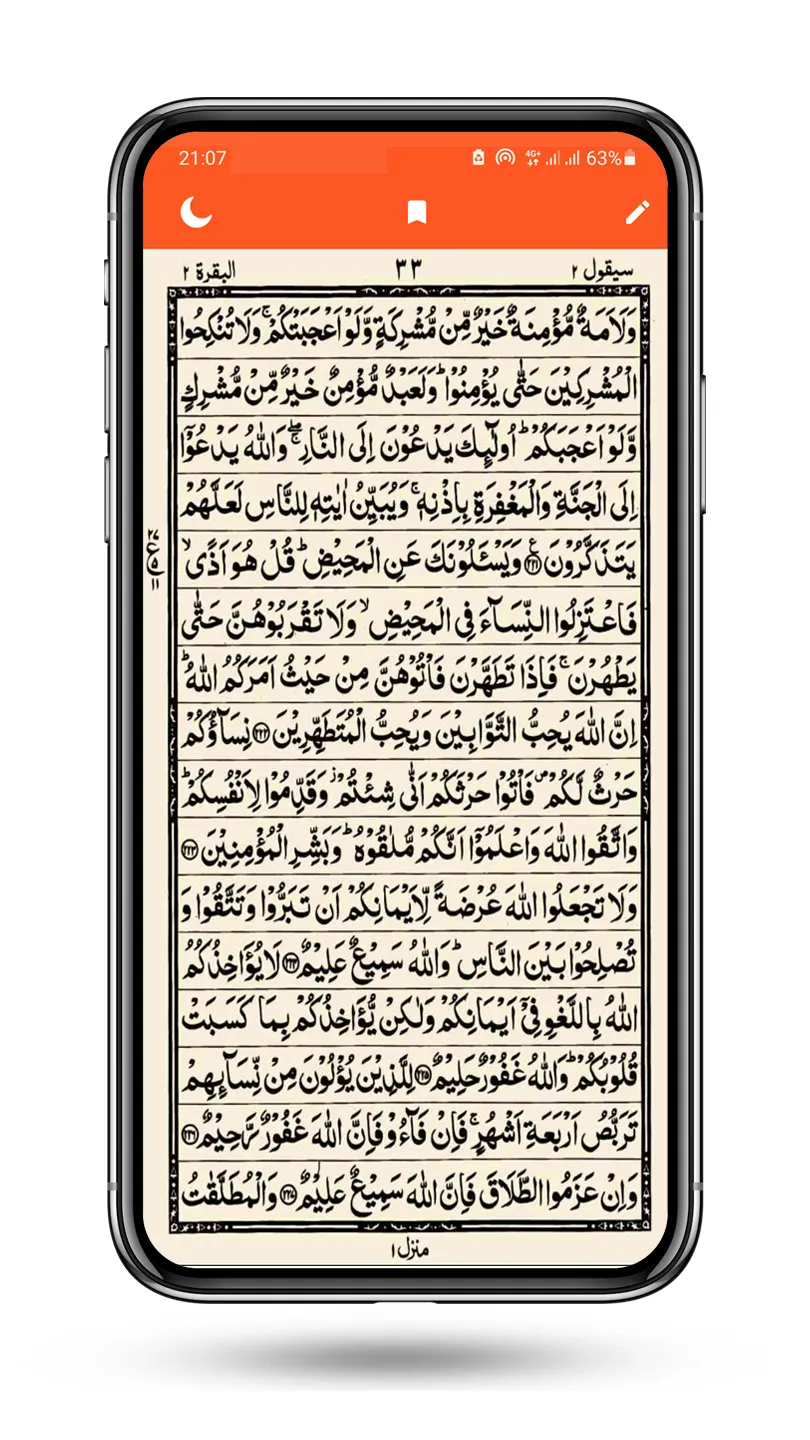 21:07 4G+ 63%
سيقول ٢ ٣٣ البقرة ٢
وَلَاَمَةٌ مُّؤْمِنَةٌ خَيْرٌ مِّنْ مُّشْرِكَةٍ وَّلَوْ اَعْجَبَتْكُمْ ۚ وَلَا تُنْكِحُوا
الْمُشْرِكِيْنَ حَتّٰى يُؤْمِنُوْا ؕ وَلَعَبْدٌ مُّؤْمِنٌ خَيْرٌ مِّنْ مُّشْرِكٍ
وَّلَوْ اَعْجَبَكُمْ ؕ اُولٰٓئِكَ يَدْعُوْنَ اِلَى النَّارِ ۖۚ وَاللّٰهُ يَدْعُوْٓا
اِلَى الْجَنَّةِ وَالْمَغْفِرَةِ بِاِذْنِهٖ ۚ وَيُبَيِّنُ اٰيٰتِهٖ لِلنَّاسِ لَعَلَّهُمْ
يَتَذَكَّرُوْنَ ۝٢٢١ ع وَيَسْـَٔلُوْنَكَ عَنِ الْمَحِيْضِ ؕ قُلْ هُوَ اَذًى ۙ
فَاعْتَزِلُوا النِّسَآءَ فِى الْمَحِيْضِ ۙ وَلَا تَقْرَبُوْهُنَّ حَتّٰى
يَطْهُرْنَ ۚ فَاِذَا تَطَهَّرْنَ فَاْتُوْهُنَّ مِنْ حَيْثُ اَمَرَكُمُ اللّٰهُ ؕ
اِنَّ اللّٰهَ يُحِبُّ التَّوَّابِيْنَ وَيُحِبُّ الْمُتَطَهِّرِيْنَ ۝٢٢٢ نِسَآؤُكُمْ
حَرْثٌ لَّكُمْ ۪ فَاْتُوْا حَرْثَكُمْ اَنّٰى شِئْتُمْ ؗ وَقَدِّمُوْا لِاَنْفُسِكُمْ ؕ
وَاتَّقُوا اللّٰهَ وَاعْلَمُوْٓا اَنَّكُمْ مُّلٰقُوْهُ ؕ وَبَشِّرِ الْمُؤْمِنِيْنَ ۝٢٢٣
وَلَا تَجْعَلُوا اللّٰهَ عُرْضَةً لِّاَيْمَانِكُمْ اَنْ تَبَرُّوْا وَتَتَّقُوْا وَ
تُصْلِحُوْا بَيْنَ النَّاسِ ؕ وَاللّٰهُ سَمِيْعٌ عَلِيْمٌ ۝٢٢٤ لَا يُؤَاخِذُكُمُ
اللّٰهُ بِاللَّغْوِ فِىْٓ اَيْمَانِكُمْ وَلٰكِنْ يُّؤَاخِذُكُمْ بِمَا كَسَبَتْ
قُلُوْبُكُمْ ؕ وَاللّٰهُ غَفُوْرٌ حَلِيْمٌ ۝٢٢٥ لِلَّذِيْنَ يُؤْلُوْنَ مِنْ نِّسَآئِهِمْ
تَرَبُّصُ اَرْبَعَةِ اَشْهُرٍ ۚ فَاِنْ فَآءُوْ فَاِنَّ اللّٰهَ غَفُوْرٌ رَّحِيْمٌ ۝٢٢٦
وَاِنْ عَزَمُوا الطَّلَاقَ فَاِنَّ اللّٰهَ سَمِيْعٌ عَلِيْمٌ ۝٢٢٧ وَالْمُطَلَّقٰتُ
منزل ١